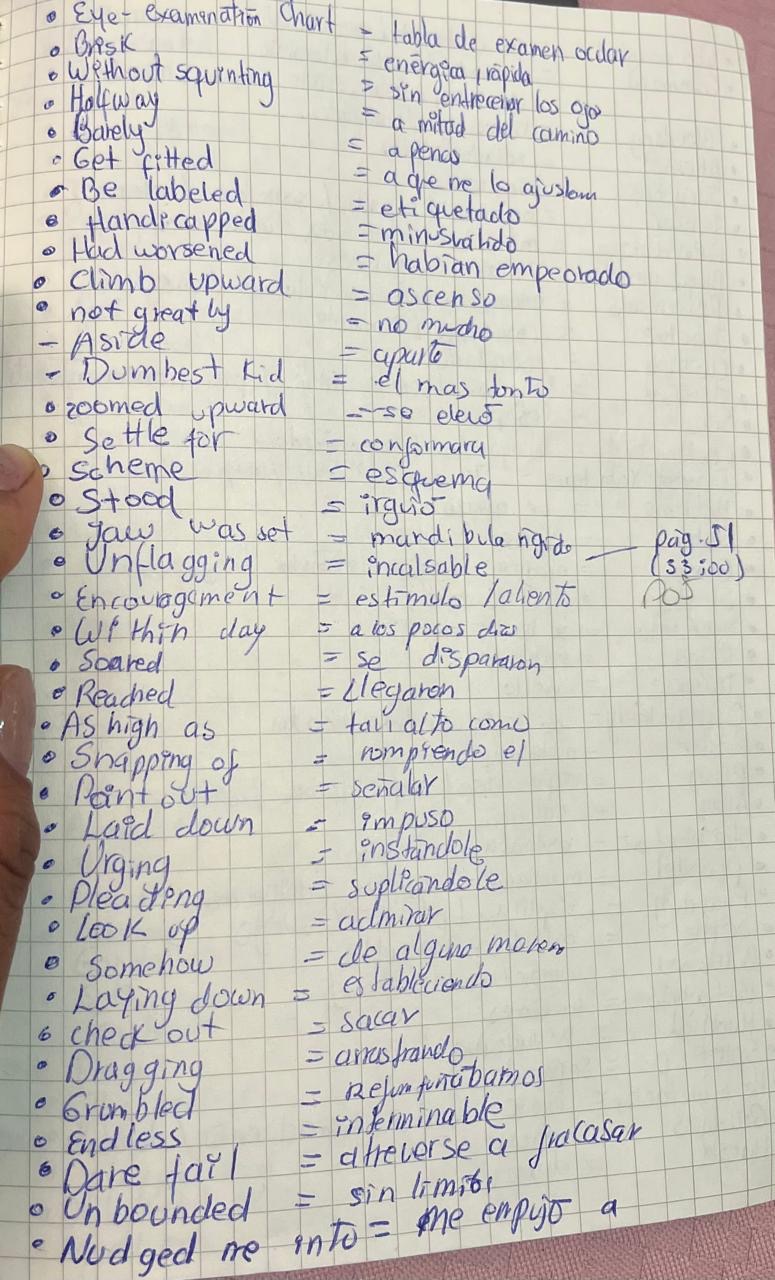 • Eye-examination Chart = tabla de examen ocular
• Brisk = enérgica, rápida
• Without squinting = sin entrecerrar los ojos
• Halfway = a mitad del camino
• Barely = apenas
• Get fitted = a que me lo ajustaran
• Be labeled = etiquetado
• Handicapped = minusválido
• Had worsened = habían empeorado
• Climb upward = ascenso
• not greatly = no mucho
- Aside = aparte
- Dumbest Kid = el mas tonto
• zoomed upward = se elevó
• Settle for = conformara
• Scheme = esquema
• Stood = irguió
• Jaw was set = mandibula rigida — pág. 51
• Unflagging = incalsable (53:00)
• Encouragement = estímulo /aliento
• Within day = a los pocos dias
• Soared = se dispararon
• Reached = Llegaron
• As high as = tan alto como
• Snapping of = rompiendo el
• Point out = señalar
• Laid down = impuso
• Urging = instándole
• Pleading = suplicándole
• Look up = admirar
• Somehow = de alguna manera
• Laying down = estableciendo
• check out = sacar
• Dragging = arrastrando
• Grumbled = Refunfuñábamos
• Endless = interminable
• Dare fail = atreverse a fracasar
• Unbounded = sin limites
• Nudged me into = me empujó a